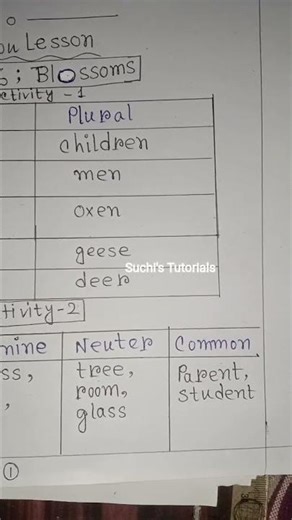 Lesson
; Blossoms
ctivity-1
Plural
children
men
oxen
geese
Suchi's Tutorials
deer
tivity-2
mine Neuter Common
ss, tree, Parent,
room, student
, glass
1